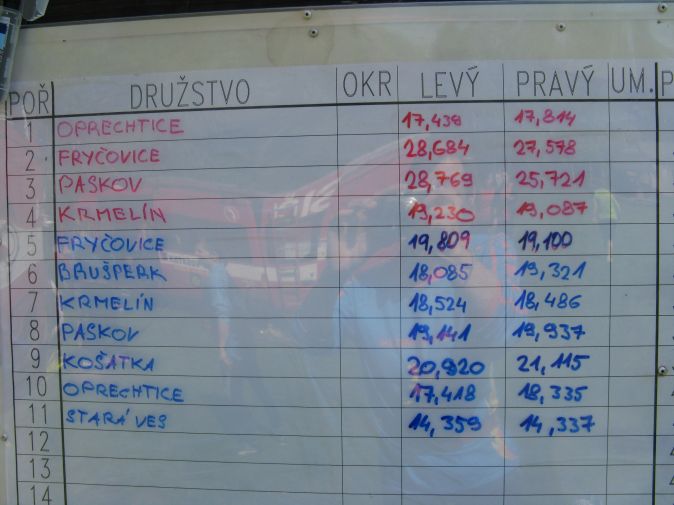 POŘ DRUŽSTVO OKR LEVÝ PRAVÝ UM. P
1 OPRECHTICE 17,438 17,814
2 FRYČOVICE 28,684 27,578
3 PASKOV 28,769 25,721
4 KRMELÍN 19,230 19,087
5 FRYČOVICE 19,809 19,100
6 BRUŠPERK 18,085 19,321
7 KRMELÍN 18,524 18,486
8 PASKOV 19,141 19,937
9 KOŠATKA 20,920 21,115
10 OPRECHTICE 17,418 18,335
11 STARÁ VES 14,359 14,337
12
13
14